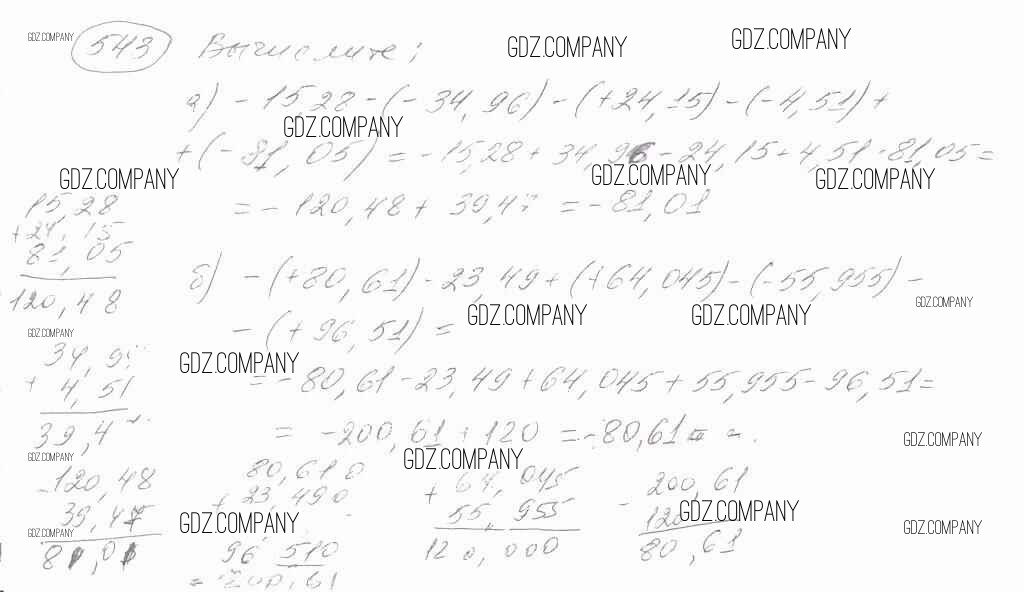 GDZ.COMPANY
543 Вычислите:
GDZ.COMPANY
GDZ.COMPANY
а) - 15,28 - (- 34,96) - (+24,15) - (-4,51) +
GDZ.COMPANY
+ (- 81,05) = - 15,28 + 34,96 - 24,15 + 4,51 - 81,05 =
GDZ.COMPANY
GDZ.COMPANY
GDZ.COMPANY
= - 120,48 + 39,47 = - 81,01
15,28
+ 24,15
81,05
120,48
б) - (+80,61) - 23,49 + (+64,045) - (-55,955) -
GDZ.COMPANY
- (+ 96,51) =
GDZ.COMPANY
GDZ.COMPANY
GDZ.COMPANY
GDZ.COMPANY
= - 80,61 - 23,49 + 64,045 + 55,955 - 96,51 =
+ 4,51
= - 200,61 + 120 = - 80,61
GDZ.COMPANY
GDZ.COMPANY
GDZ.COMPANY
- 120,48
39,47
81,01
80,610
+ 23,490
96 510
= 200,61
+ 64,045
55,955
120,000
- 200,61
120
80,61
GDZ.COMPANY
GDZ.COMPANY
GDZ.COMPANY
GDZ.COMPANY